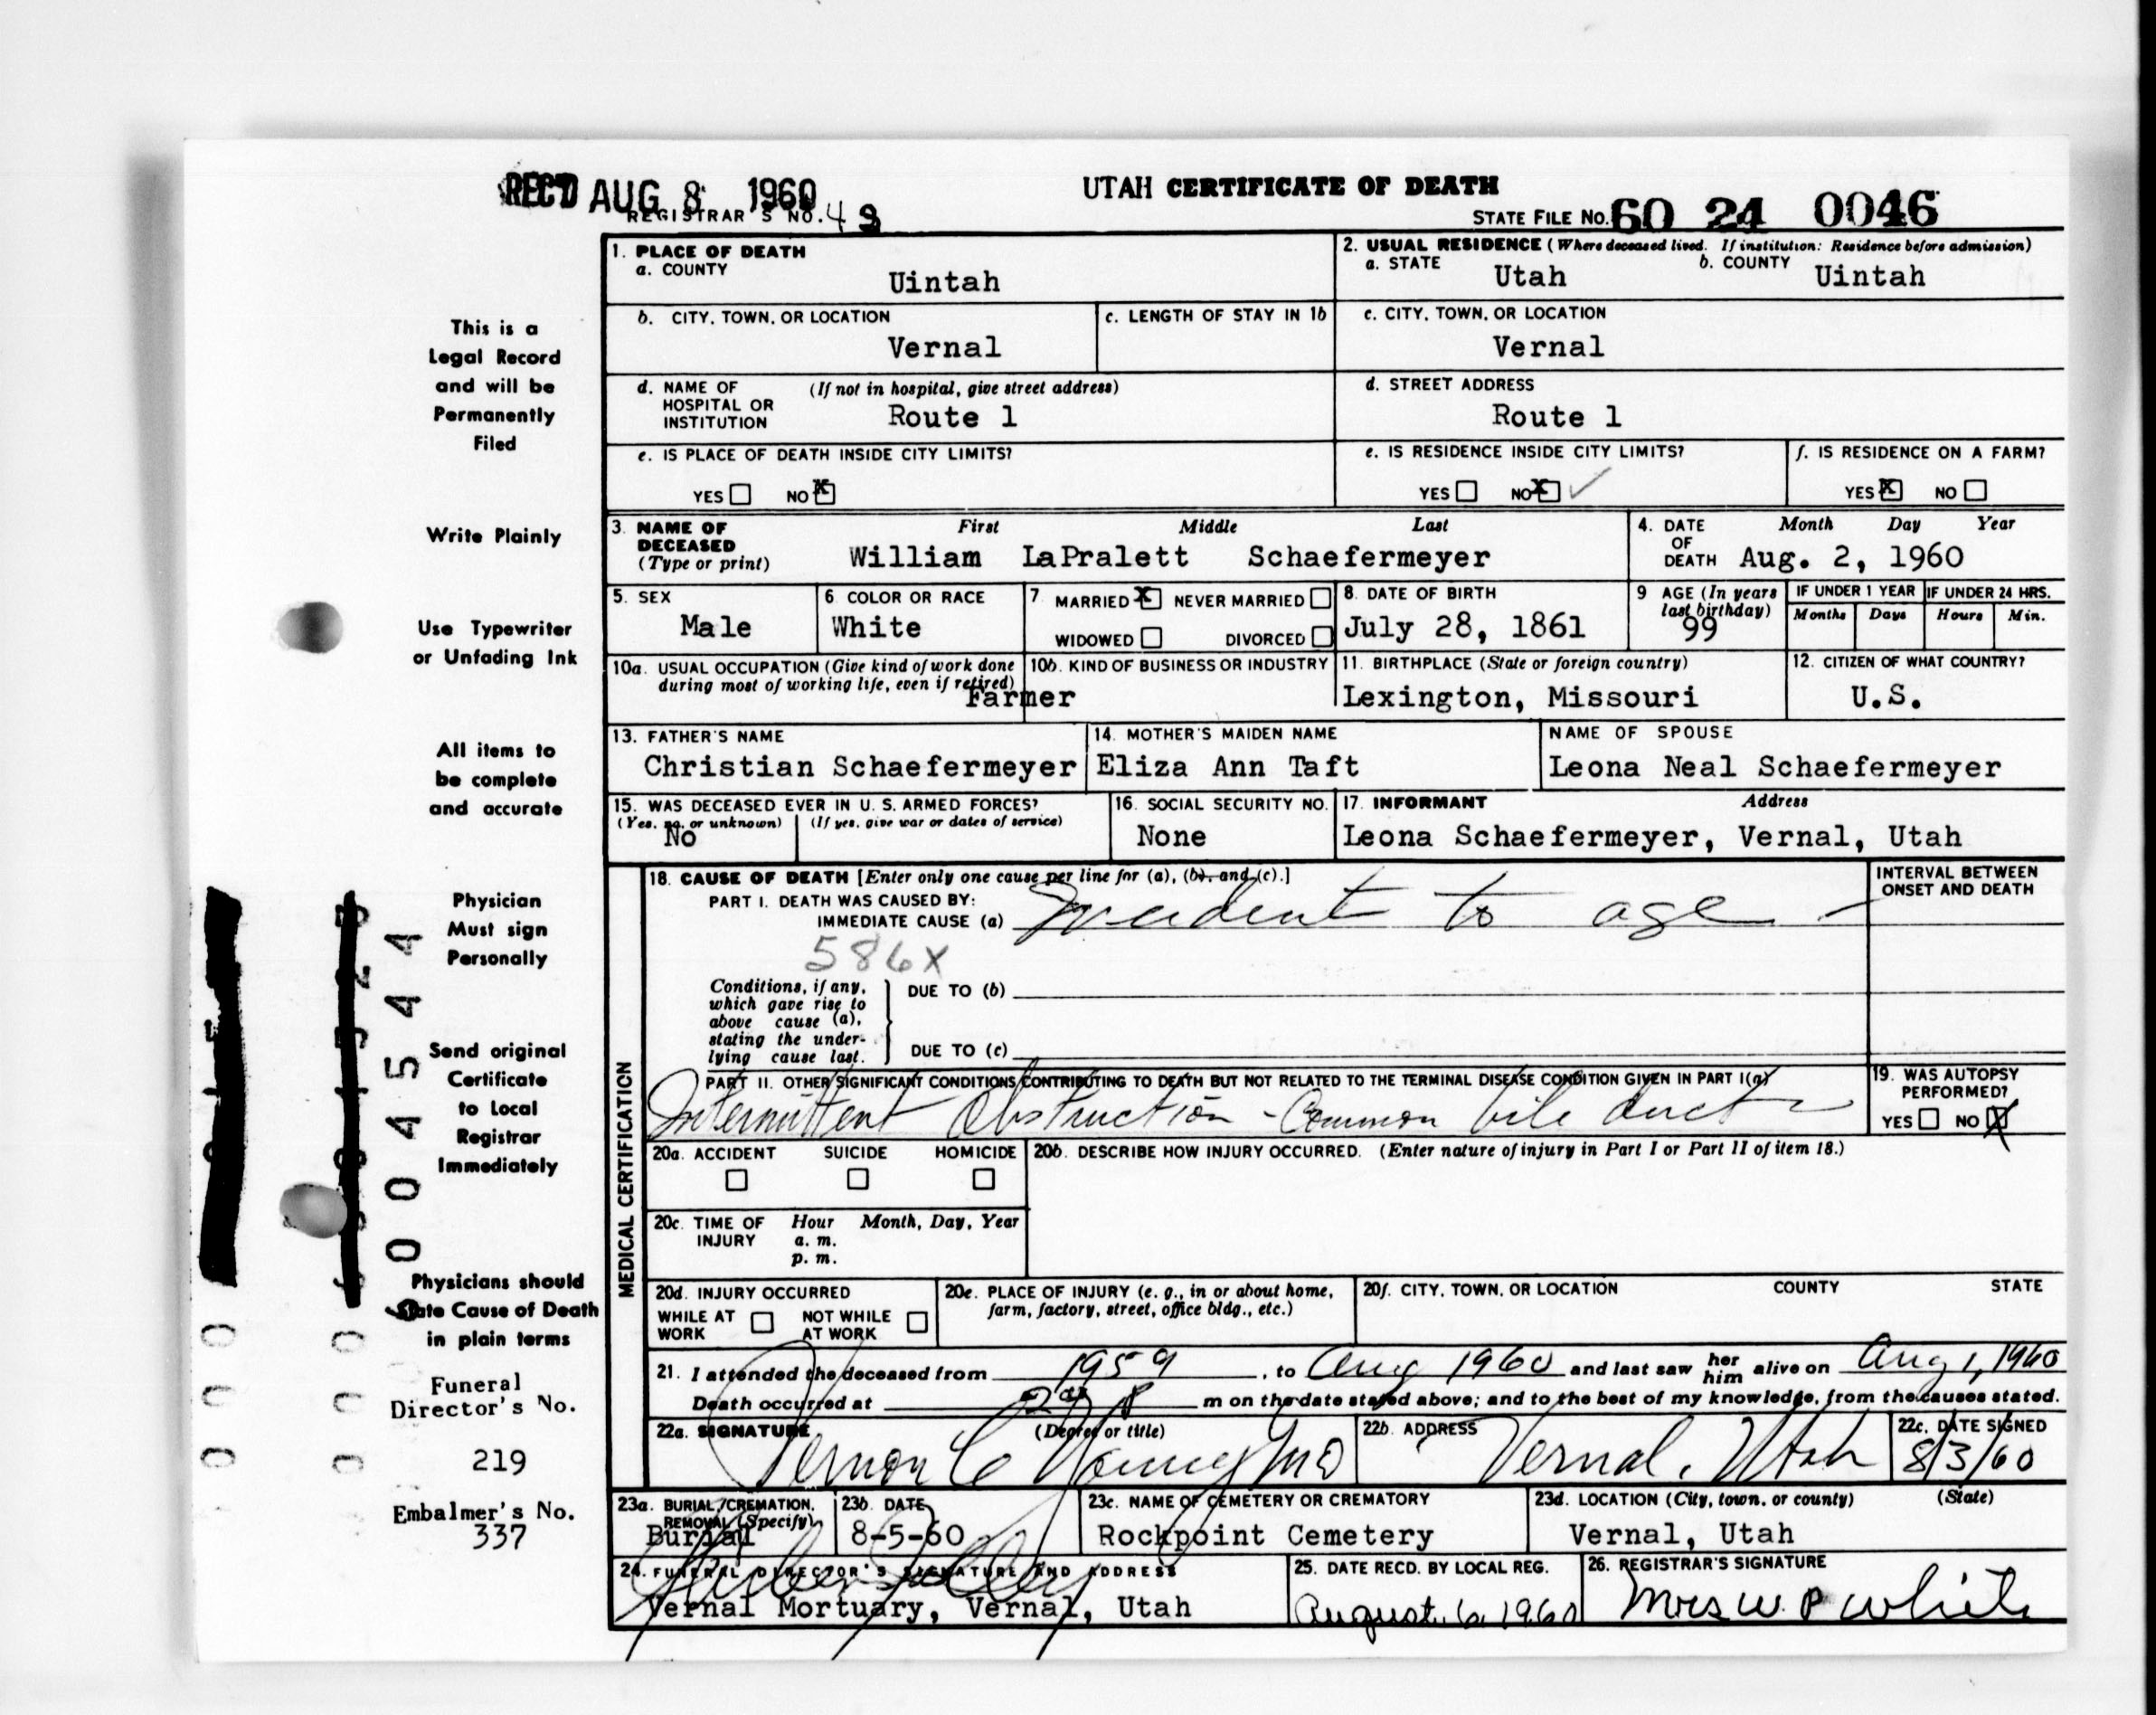 REC'D AUG 8 1960
UTAH CERTIFICATE OF DEATH
REGISTRAR'S NO. 43
STATE FILE NO. 60 24 0046
This is a
Legal Record
and will be
Permanently
Filed
Write Plainly
Use Typewriter
or Unfading Ink
All items to
be complete
and accurate
Physician
Must sign
Personally
Send original
Certificate
to Local
Registrar
Immediately
Physicians should
State Cause of Death
in plain terms
Funeral
Director's No.
219
Embalmer's No.
337
6004544
000
000
1. PLACE OF DEATH
a. COUNTY
Uintah
2. USUAL RESIDENCE (Where deceased lived. If institution: Residence before admission)
a. STATE Utah b. COUNTY Uintah
b. CITY, TOWN, OR LOCATION
Vernal
c. LENGTH OF STAY IN 1b
c. CITY, TOWN, OR LOCATION
Vernal
d. NAME OF HOSPITAL OR INSTITUTION (If not in hospital, give street address)
Route 1
d. STREET ADDRESS
Route 1
e. IS PLACE OF DEATH INSIDE CITY LIMITS?
YES NO X
e. IS RESIDENCE INSIDE CITY LIMITS?
YES NO X ✓
f. IS RESIDENCE ON A FARM?
YES X NO
3. NAME OF DECEASED (Type or print) First Middle Last
William LaPralett Schaefermeyer
4. DATE OF DEATH Month Day Year
Aug. 2, 1960
5. SEX
Male
6 COLOR OR RACE
White
7 MARRIED X NEVER MARRIED
WIDOWED DIVORCED
8. DATE OF BIRTH
July 28, 1861
9 AGE (In years last birthday)
99
IF UNDER 1 YEAR IF UNDER 24 HRS.
Months Days Hours Min.
10a. USUAL OCCUPATION (Give kind of work done
during most of working life, even if retired)
Farmer
10b. KIND OF BUSINESS OR INDUSTRY
11. BIRTHPLACE (State or foreign country)
Lexington, Missouri
12. CITIZEN OF WHAT COUNTRY?
U.S.
13. FATHER'S NAME
Christian Schaefermeyer
14. MOTHER'S MAIDEN NAME
Eliza Ann Taft
NAME OF SPOUSE
Leona Neal Schaefermeyer
15. WAS DECEASED EVER IN U. S. ARMED FORCES?
(Yes, no, or unknown) (If yes, give war or dates of service)
No
16. SOCIAL SECURITY NO.
None
17. INFORMANT Address
Leona Schaefermeyer, Vernal, Utah
MEDICAL CERTIFICATION
18. CAUSE OF DEATH [Enter only one cause per line for (a), (b), and (c).]
PART I. DEATH WAS CAUSED BY:
IMMEDIATE CAUSE (a) Incident to age
INTERVAL BETWEEN
ONSET AND DEATH
586X
Conditions, if any,
which gave rise to
above cause (a),
stating the under-
lying cause last.
DUE TO (b)
DUE TO (c)
PART II. OTHER SIGNIFICANT CONDITIONS CONTRIBUTING TO DEATH BUT NOT RELATED TO THE TERMINAL DISEASE CONDITION GIVEN IN PART I(a)
Intermittent obstruction - Common bile duct
19. WAS AUTOPSY
PERFORMED?
YES NO X
20a. ACCIDENT SUICIDE HOMICIDE
20b. DESCRIBE HOW INJURY OCCURRED. (Enter nature of injury in Part I or Part II of item 18.)
20c. TIME OF INJURY Hour Month, Day, Year
a. m.
p. m.
20d. INJURY OCCURRED
WHILE AT WORK NOT WHILE AT WORK
20e. PLACE OF INJURY (e. g., in or about home,
farm, factory, street, office bldg., etc.)
20f. CITY, TOWN, OR LOCATION COUNTY STATE
21. I attended the deceased from 1959, to Aug 1960 and last saw her him alive on Aug 1, 1960
Death occurred at m on the date stated above; and to the best of my knowledge, from the causes stated.
22a. SIGNATURE (Degree or title)
Vernon C Young MD
22b. ADDRESS
Vernal, Utah
22c. DATE SIGNED
8/3/60
23a. BURIAL, CREMATION,
REMOVAL (Specify)
Burial
23b. DATE
8-5-60
23c. NAME OF CEMETERY OR CREMATORY
Rockpoint Cemetery
23d. LOCATION (City, town, or county) (State)
Vernal, Utah
24. FUNERAL DIRECTOR'S SIGNATURE AND ADDRESS
Vernal Mortuary, Vernal, Utah
25. DATE RECD. BY LOCAL REG.
August 6, 1960
26. REGISTRAR'S SIGNATURE
Mrs W. P White